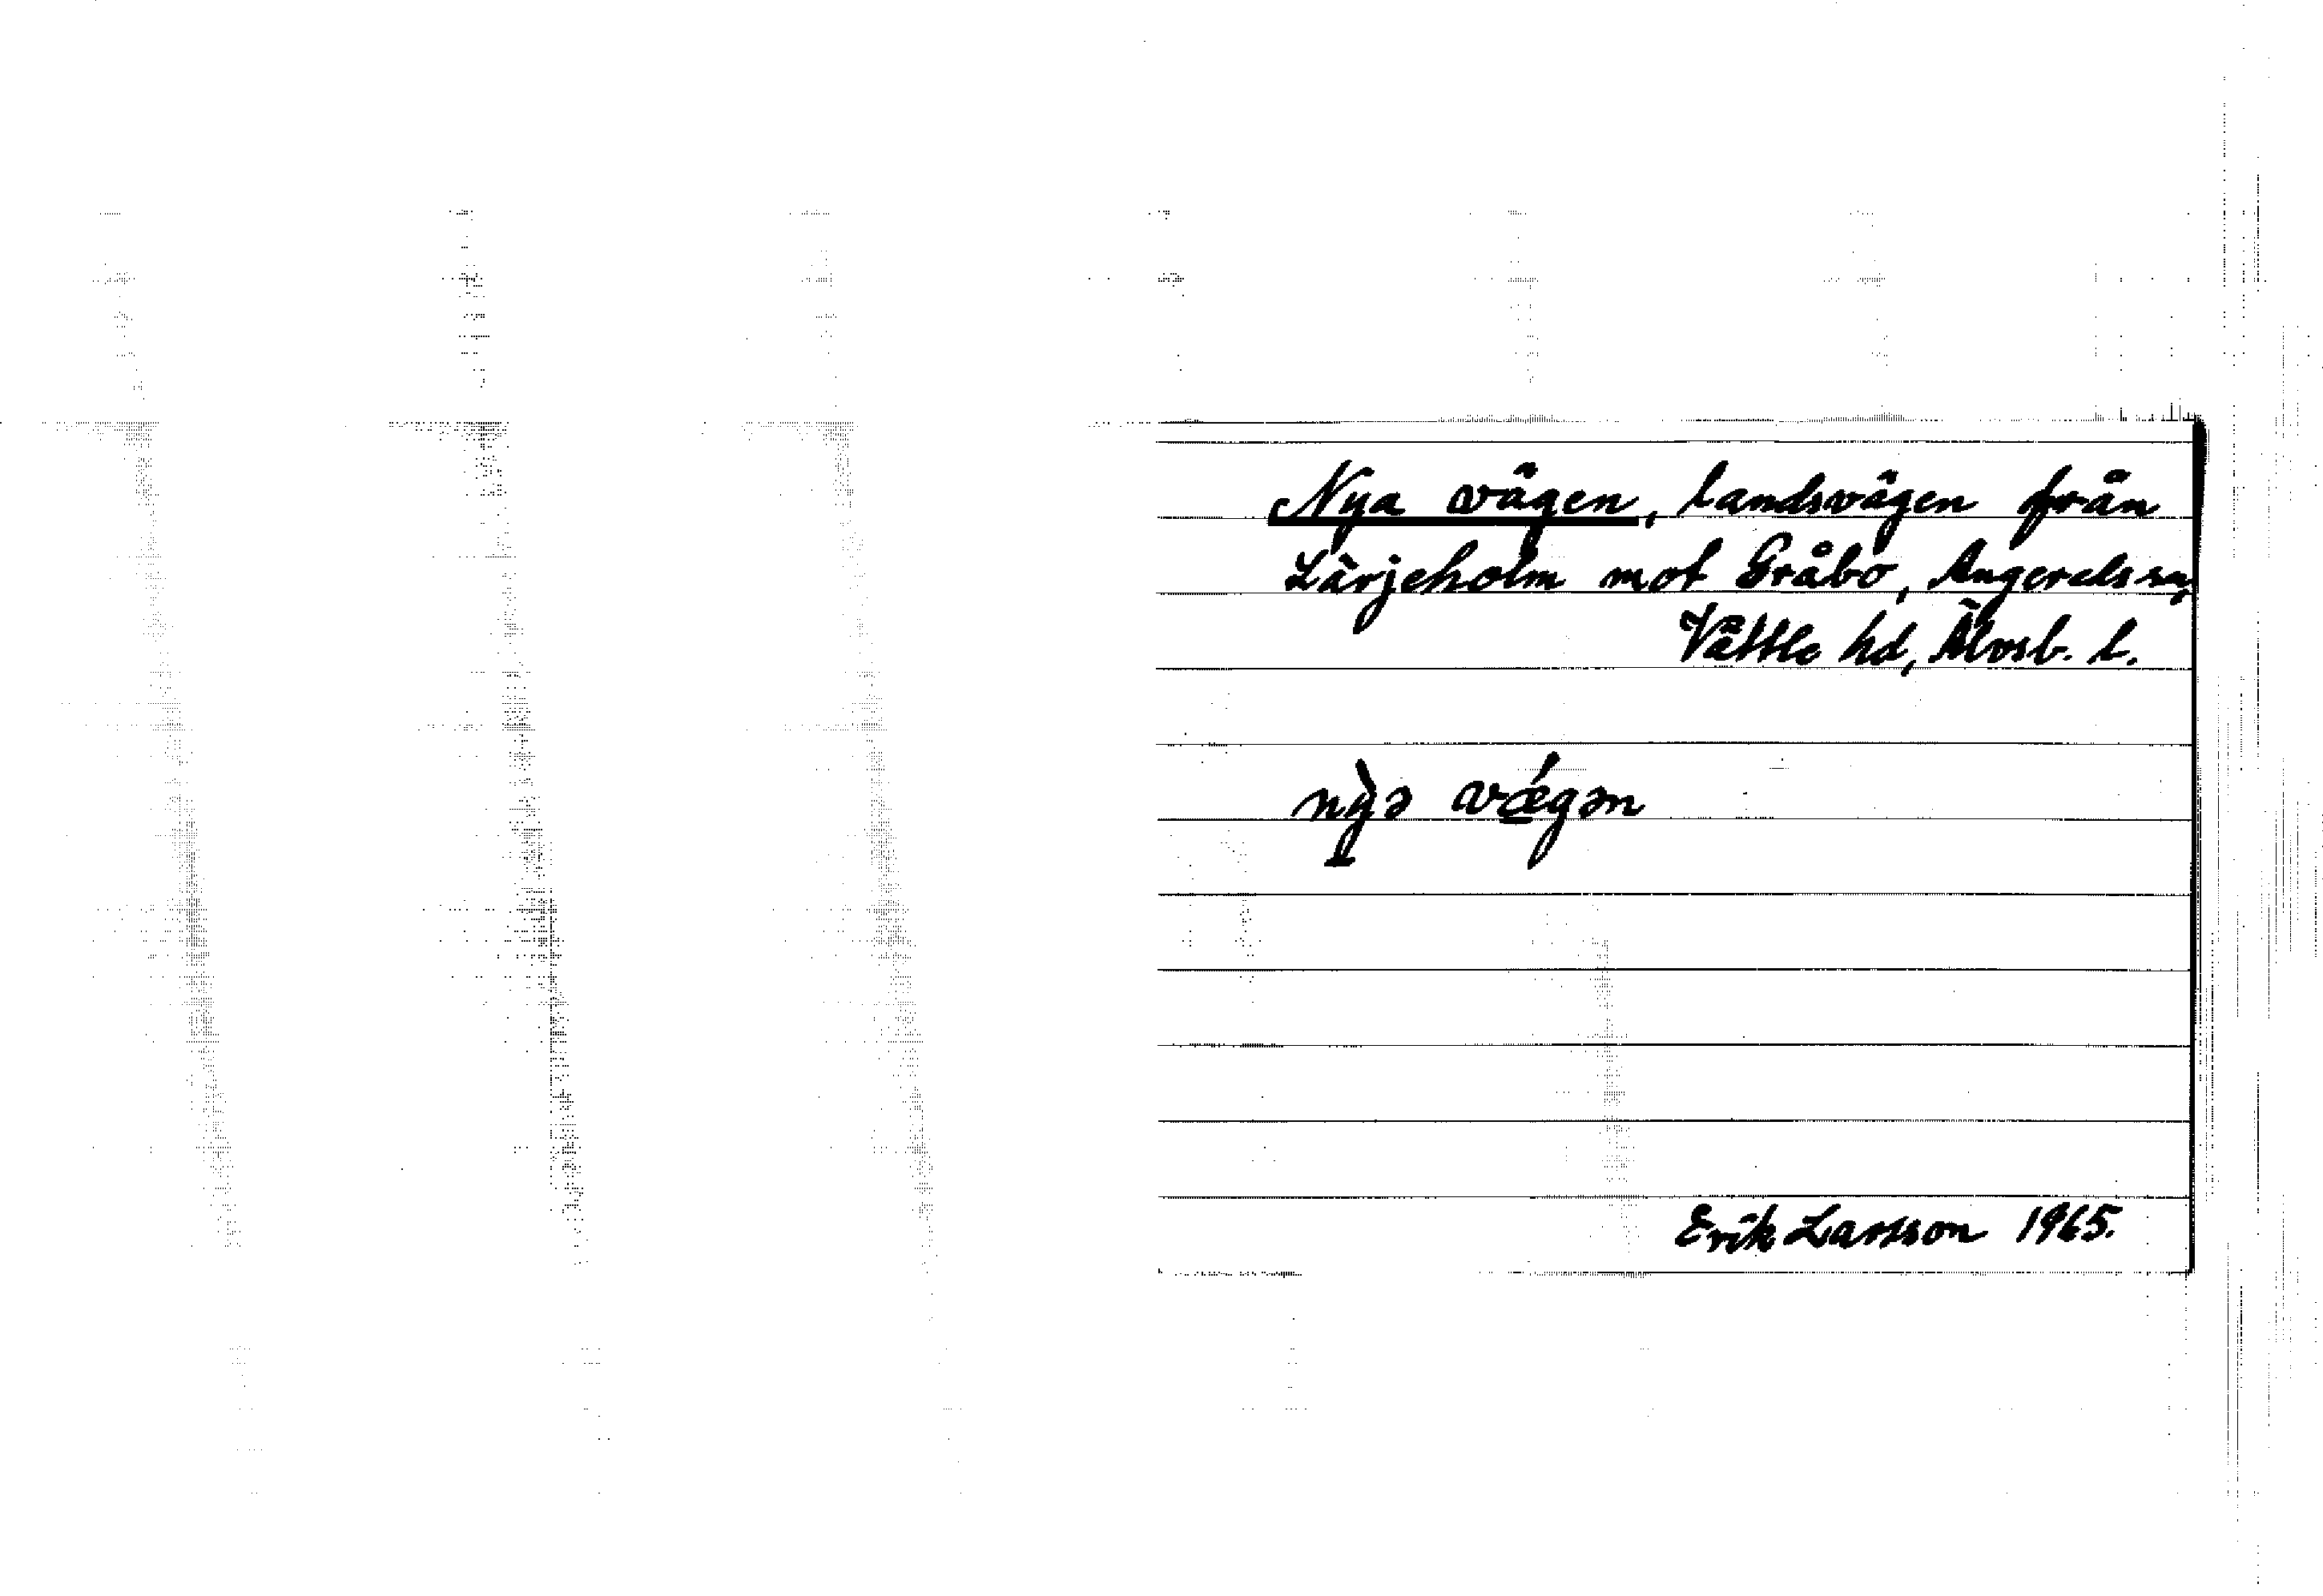 Nya vägen, landsvägen från
Lärjeholm mot Gråbo, Angereds sn,
Vättle hd, Älvsb. l.
nỳə vǽgən
Erik Larsson 1965.